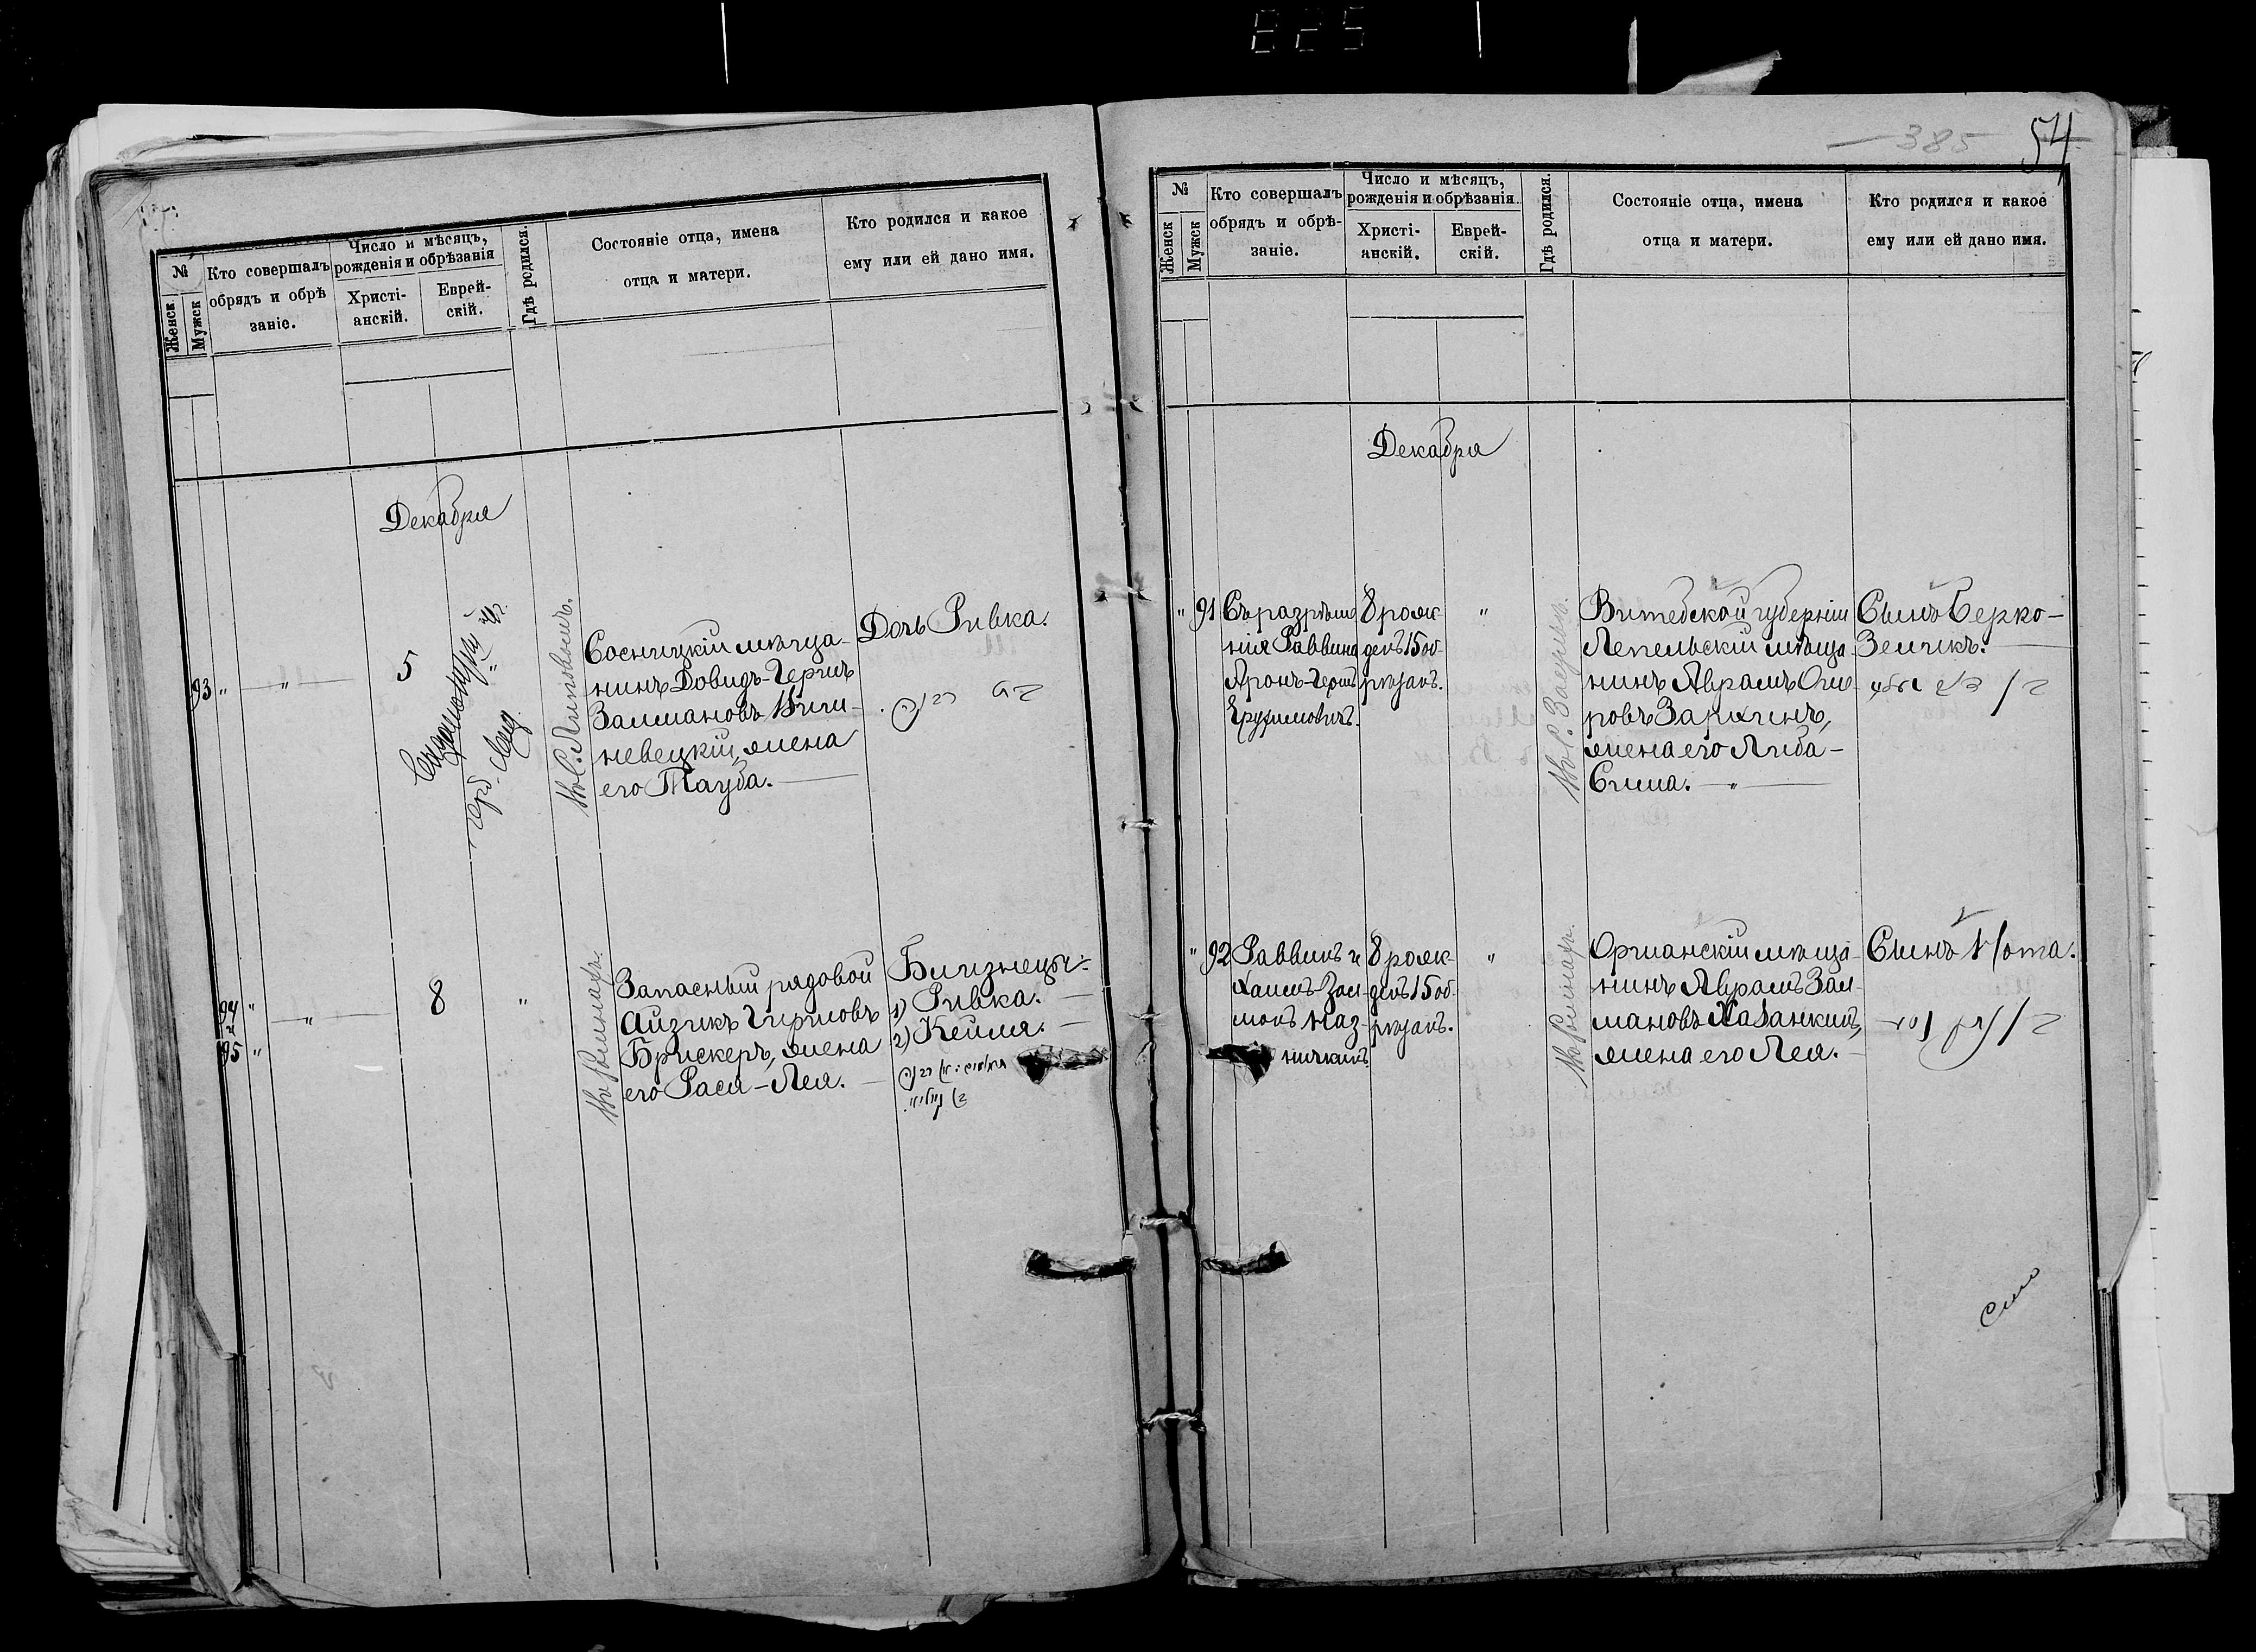 225
№
Женск
Мужск
Кто совершалъ
обрядъ и обрѣ
заніе.
Число и мѣсяцъ,
рожденія и обрѣзанія
Христі-
анскій.
Еврей-
скій.
Гдѣ родился.
Состояніе отца, имена
отца и матери.
Кто родился и какое
ему или ей дано имя.
Декабря
93 "
"
5
Въ С.
Сосницкій мѣща-
нинъ Довидъ-Гершъ
Залмановъ
невецкій, жена
его Тауба.
Дочь Ривка.
בת רבקה
94 "
и
95 "
"
8
"
Запасный рядовой
Айзикъ Гиршовъ
Брискеръ, жена
его Рася-Лея.
Близнецы:
1) Ривка.
2) Кейля.
385
54
№
Женск
Мужск
Кто совершалъ
обрядъ и обрѣ-
заніе.
Число и мѣсяцъ,
рожденія и обрѣзанія.
Христі-
анскій.
Еврей-
скій.
Гдѣ родился.
Состояніе отца, имена
отца и матери.
Кто родился и какое
ему или ей дано имя.
Декабря
" 91
Съ разрѣше
нія Раввина
Аронъ-Гершъ
8 рож-
денъ 15 об-
рѣзанъ.
"
Витебской губерніи
Лепельскій мѣща-
нинъ Абрамъ
ровъ
жена его Либа-
Сима.
Сынъ Берко-
Зеликъ.
" 92
Раввинъ и
Хаимъ-Зал
манъ Наз-
ничкинъ
8 рож-
денъ 15 об-
рѣзанъ.
"
Оршанскій мѣща-
нинъ Абрамъ Зал-
мановъ Хаванкинъ,
жена его Лея.
Сынъ Нота.